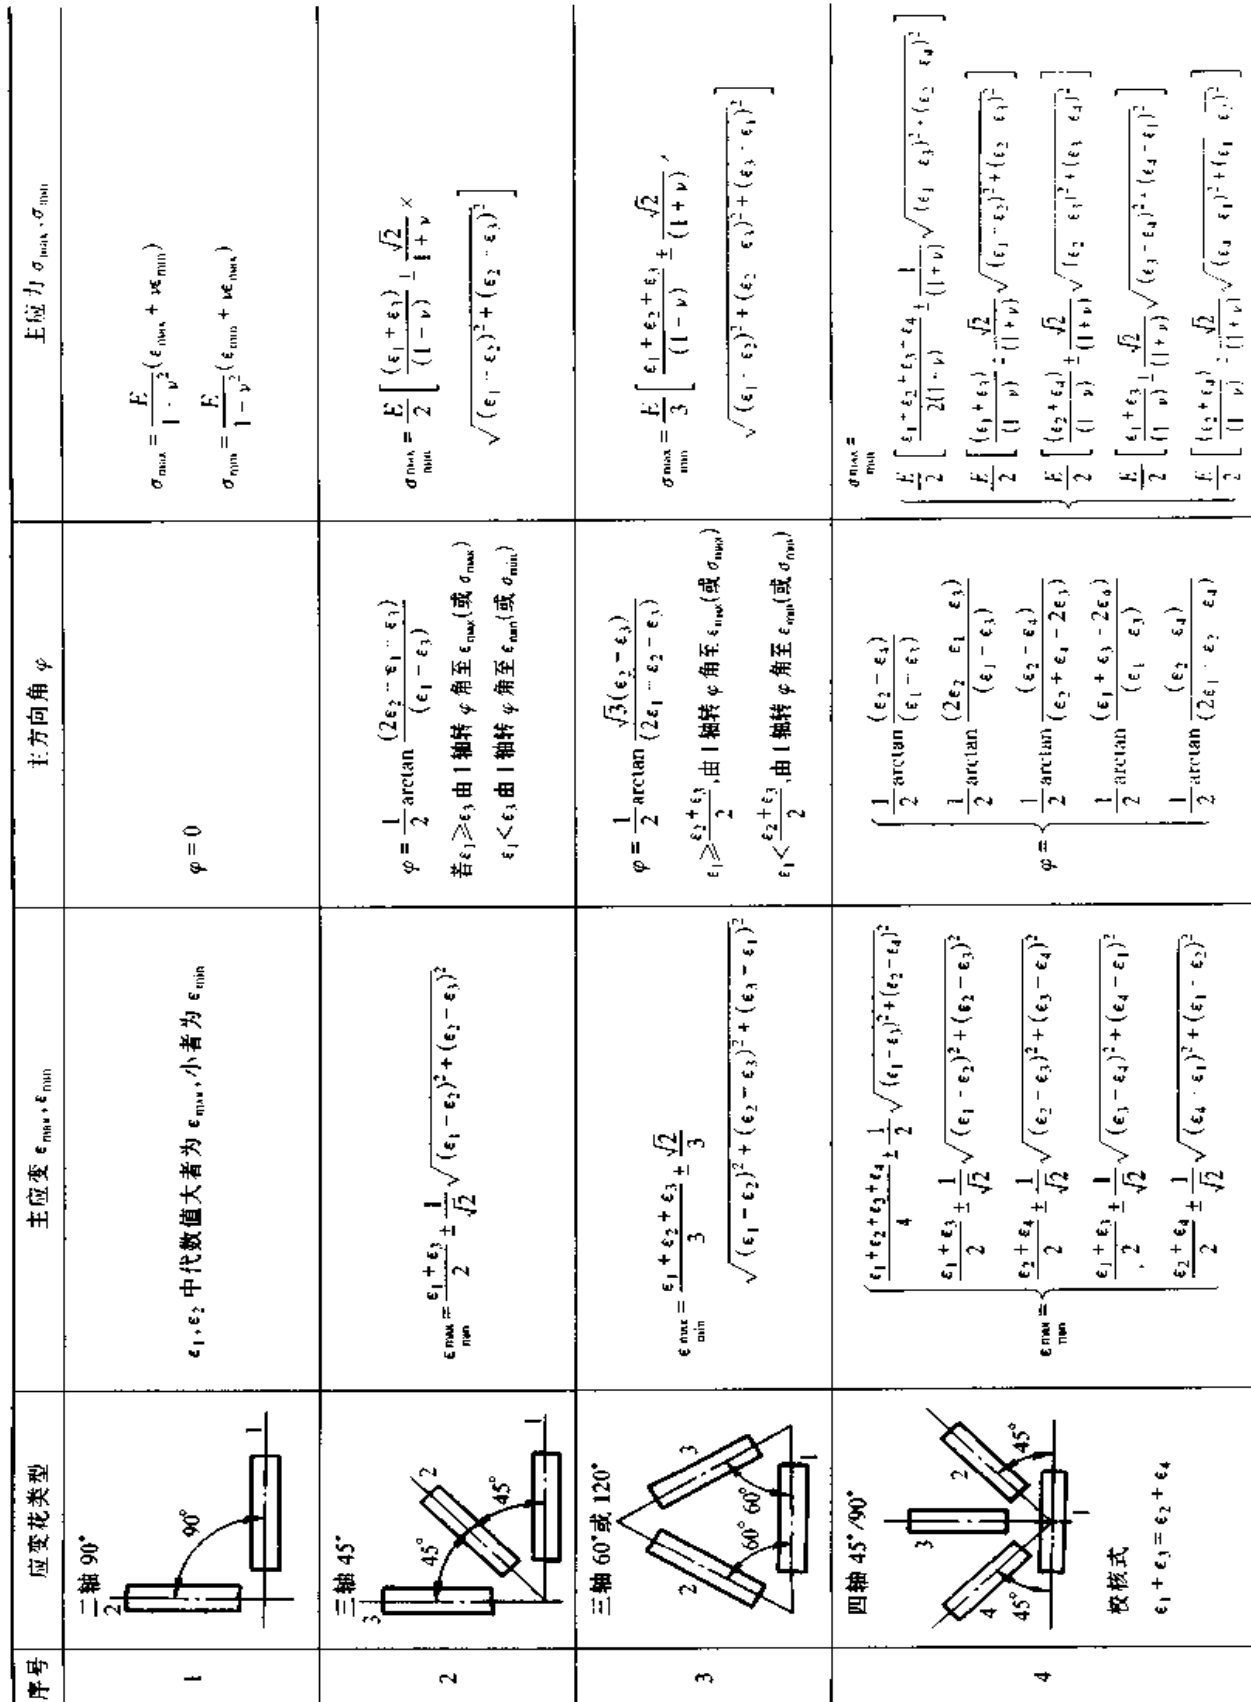 序号 应变花类型 主应变 ε_max,ε_min 主方向角 φ 主应力 σ_max,σ_min
1
二轴 90°
2
90°
1
ε₁,ε₂ 中代数值大者为 ε_max,小者为 ε_min
φ=0
σ_max = E/(1-ν²) (ε_max + νε_min)
σ_min = E/(1-ν²) (ε_min + νε_max)
2
三轴 45°
3
45°
2
45°
1
ε_max/min = (ε₁+ε₃)/2 ± 1/√2 √((ε₁-ε₂)²+(ε₂-ε₃)²)
φ = 1/2 arctan (2ε₂-ε₁-ε₃)/(ε₁-ε₃)
若 ε₁≥ε₃ 由 1 轴转 φ 角至 ε_max(或 σ_max)
ε₁<ε₃ 由 1 轴转 φ 角至 ε_min(或 σ_min)
σ_max/min = E/2 [ (ε₁+ε₃)/(1-ν) ± √2/(1+ν) ×
√((ε₁-ε₂)²+(ε₂-ε₃)²) ]
3
三轴 60°或 120°
2
3
60° 60°
1
ε_max/min = (ε₁+ε₂+ε₃)/3 ± √2/3
√((ε₁-ε₂)²+(ε₂-ε₃)²+(ε₃-ε₁)²)
φ = 1/2 arctan √3(ε₂-ε₃)/(2ε₁-ε₂-ε₃)
ε₁≥(ε₂+ε₃)/2,由 1 轴转 φ 角至 ε_max(或 σ_max)
ε₁<(ε₂+ε₃)/2,由 1 轴转 φ 角至 ε_min(或 σ_min)
σ_max/min = E/3 [ (ε₁+ε₂+ε₃)/(1-ν) ± √2/(1+ν) ×
√((ε₁-ε₂)²+(ε₂-ε₃)²+(ε₃-ε₁)²) ]
4
四轴 45°/90°
3
2
4
45°
45°
1
校核式
ε₁+ε₃=ε₂+ε₄
ε_max/min =
(ε₁+ε₂+ε₃+ε₄)/4 ± 1/2 √((ε₁-ε₃)²+(ε₂-ε₄)²)
(ε₁+ε₃)/2 ± 1/√2 √((ε₁-ε₂)²+(ε₂-ε₃)²)
(ε₂+ε₄)/2 ± 1/√2 √((ε₂-ε₃)²+(ε₃-ε₄)²)
(ε₁+ε₃)/2 ± 1/√2 √((ε₃-ε₄)²+(ε₄-ε₁)²)
(ε₂+ε₄)/2 ± 1/√2 √((ε₄-ε₁)²+(ε₁-ε₂)²)
φ =
1/2 arctan (ε₂-ε₄)/(ε₁-ε₃)
1/2 arctan (2ε₂-ε₁-ε₃)/(ε₁-ε₃)
1/2 arctan (ε₂-ε₄)/(ε₂+ε₄-2ε₃)
1/2 arctan (ε₁+ε₃-2ε₄)/(ε₁-ε₃)
1/2 arctan (ε₂-ε₄)/(2ε₁-ε₂-ε₄)
σ_max/min =
E/2 [ (ε₁+ε₂+ε₃+ε₄)/2(1-ν) ± 1/(1+ν) √((ε₁-ε₃)²+(ε₂-ε₄)²) ]
E/2 [ (ε₁+ε₃)/(1-ν) ± √2/(1+ν) √((ε₁-ε₂)²+(ε₂-ε₃)²) ]
E/2 [ (ε₂+ε₄)/(1-ν) ± √2/(1+ν) √((ε₂-ε₃)²+(ε₃-ε₄)²) ]
E/2 [ (ε₁+ε₃)/(1-ν) ± √2/(1+ν) √((ε₃-ε₄)²+(ε₄-ε₁)²) ]
E/2 [ (ε₂+ε₄)/(1-ν) ± √2/(1+ν) √((ε₄-ε₁)²+(ε₁-ε₂)²) ]